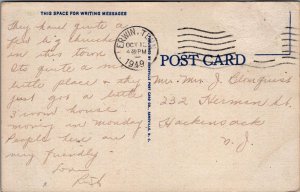 THIS SPACE FOR WRITING MESSAGES
They have quite a
few churches
in this town
Its quite a nice
little place & they
just got a little
5 room house
moving in Monday
People here are
very friendly.
Love
ERWIN, TENN.
OCT 12
4-PM
1949
POST CARD
Mr. Mrs. J. Bloequiss
232 Herman St.
Hackensack
N. J.